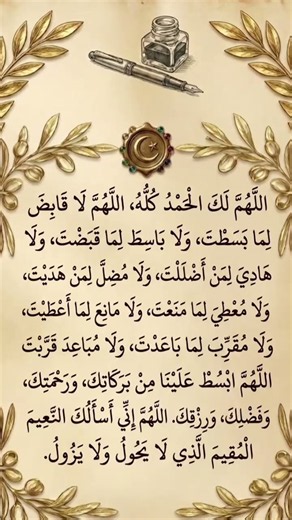 اللَّهُمَّ لَكَ الْحَمْدُ كُلُّهُ، اللَّهُمَّ لَا قَابِضَ
لِمَا بَسَطْتَ، وَلَا بَاسِطَ لِمَا قَبَضْتَ، وَلَا
هَادِيَ لِمَنْ أَضْلَلْتَ، وَلَا مُضِلَّ لِمَنْ هَدَيْتَ،
وَلَا مُعْطِيَ لِمَا مَنَعْتَ، وَلَا مَانِعَ لِمَا أَعْطَيْتَ،
وَلَا مُقَرِّبَ لِمَا بَاعَدْتَ، وَلَا مُبَاعِدَ قَرَّبْتَ
اللَّهُمَّ ابْسُطْ عَلَيْنَا مِنْ بَرَكَاتِكَ، وَرَحْمَتِكَ،
وَفَضْلِكَ، وَرِزْقِكَ. اللَّهُمَّ إِنِّي أَسْأَلُكَ النَّعِيمَ
الْمُقِيمَ الَّذِي لَا يَحُولُ وَلَا يَزُولُ.